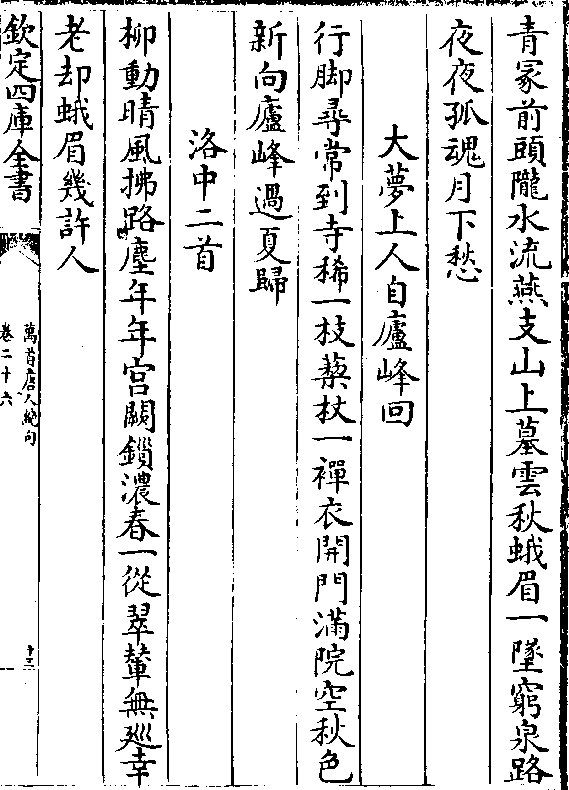 青冢前頭隴水流燕支山上墓雲秋蛾眉一墜窮泉路
夜夜孤魂月下愁
大夢上人自廬峰回
行脚尋常到寺稀一枝藜杖一禪衣開門滿院空秋色
新向廬峰過夏歸
洛中二首
柳動晴風拂路塵年年宫闕鎖濃春一從翠輦無廵幸
老却蛾眉幾許人
欽定四庫全書
萬首唐人絶句
卷二十六
十三